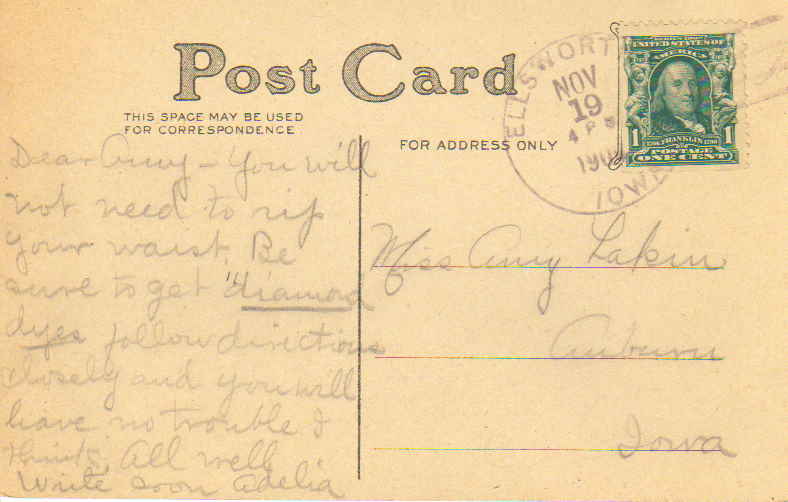 Post Card
THIS SPACE MAY BE USED
FOR CORRESPONDENCE
FOR ADDRESS ONLY
ELLSWORTH
NOV
19
4 P
190
IOWA
UNITED STATES OF
AMERICA
1 FRANKLIN 1
POSTAGE
ONE CENT
Dear Amy – You will
not need to rip
your waist. Be
sure to get "diamond
dyes follow directions
closely and you will
have no trouble I
think. All well
Write soon Adelia
Miss Amy Lakin
Auburn
Iowa